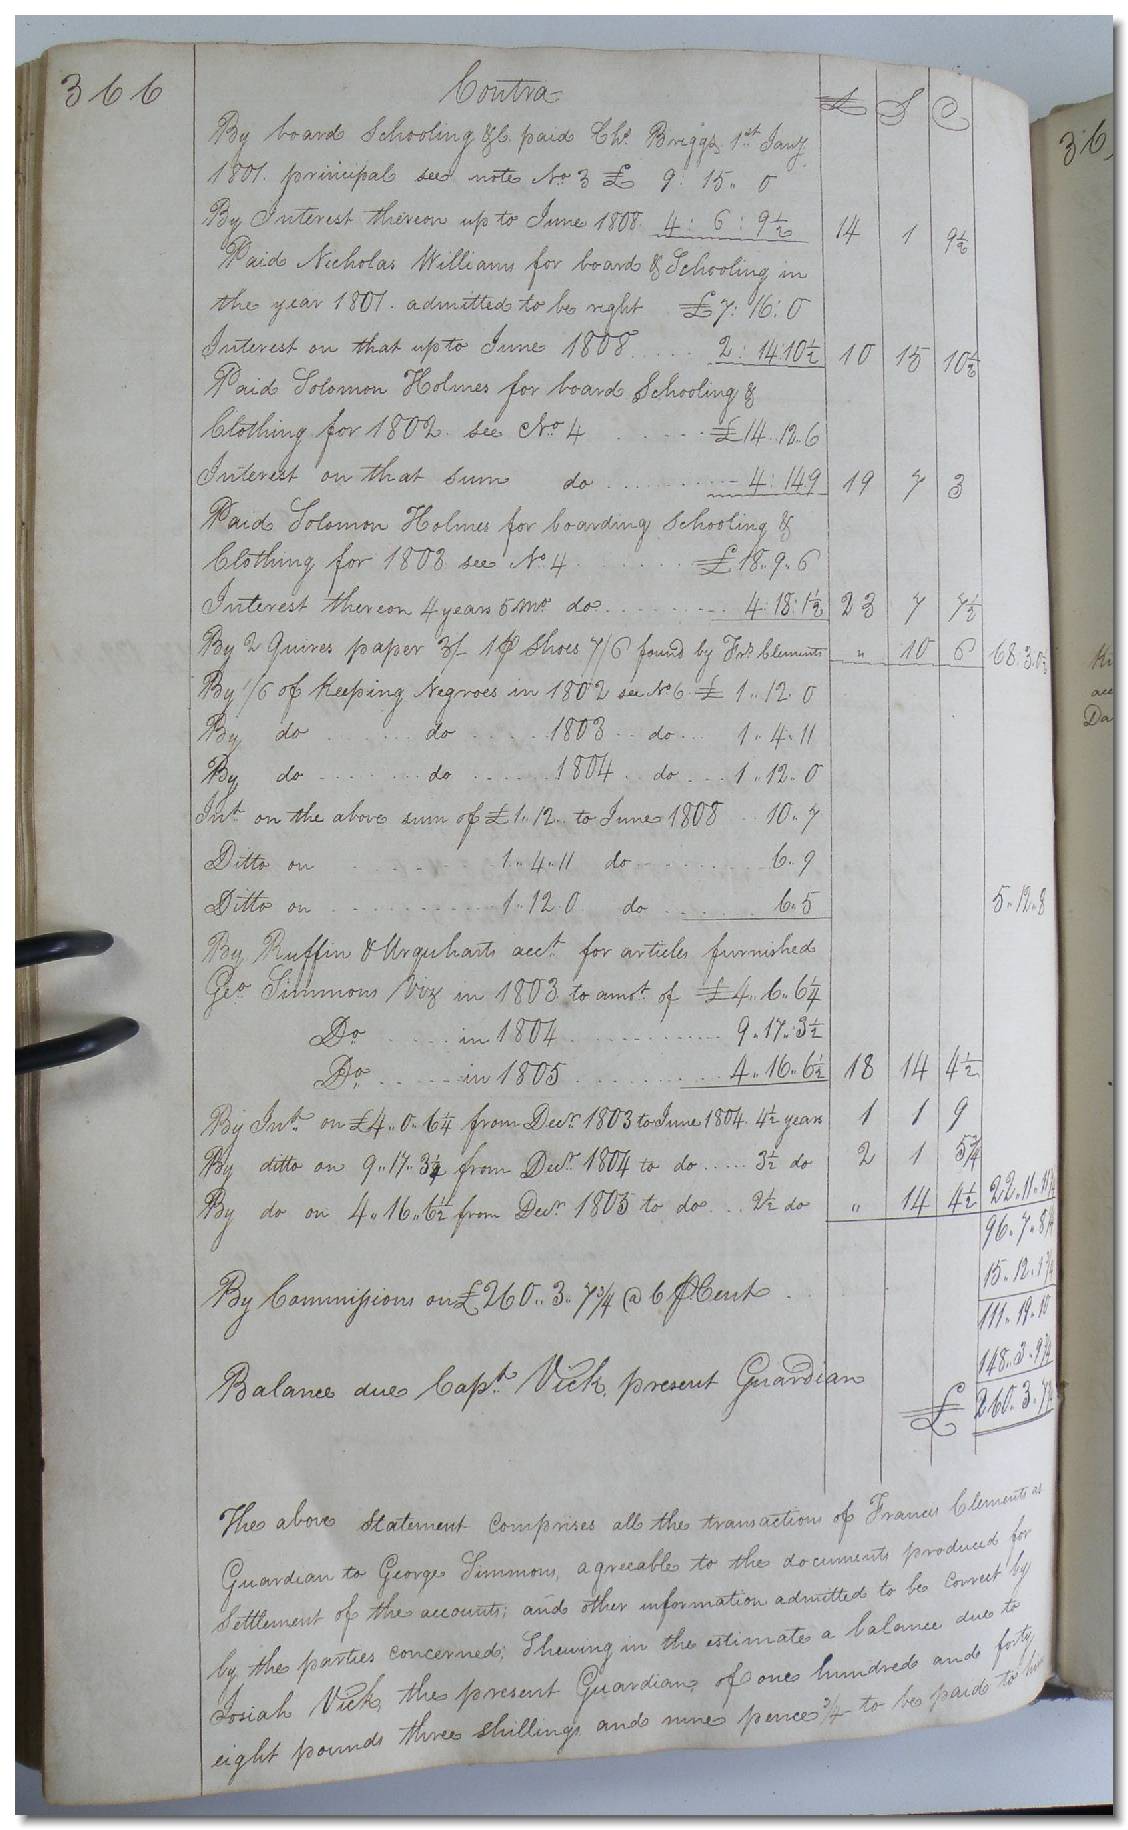 366
Contra
£ S C
By board Schooling &c. paid Chs. Briggs 1st Jany.
1801. principal see note No. 3 £ 9: 15,, 0
By Interest thereon up to June 1808. 4: 6: 9½ 14 1 9½
Paid Nicholas Williams for board & Schooling in
the year 1801. admitted to be right £7: 16: 0
Interest on that up to June 1808 .... 2: 14: 10½ 10 15 10½
Paid Solomon Holmes for board Schooling &
Clothing for 1802. see No. 4 ..... £14..12..6
Interest on that sum do ........ 4: 14 9 19 7 3
Paid Solomon Holmes for boarding Schooling &
Clothing for 1803 see No. 4 ...... £18..9..6
Interest thereon 4 years 5 Mo. do ........ 4: 18: 1½ 23 7 7½
By 2 Quires paper 3/- 1 p Shoes 7/6 found by Frs. Clements ,, 10 6 68..3..0½
By 1/6 of Keeping Negroes in 1802 see No 6 £ 1..12..0
By do ...... do ..... 1803 .. do ... 1..4..11
By do ...... do ..... 1804 .. do ... 1..12..0
Int. on the above sum of £1..12.. to June 1808 .. 10..7
Ditto on ........ 1..4..11 do ........ 6..9
Ditto on ........ 1..12..0 do ........ 6..5 5..12..8
By Ruffin & Urquharts acct. for articles furnished
Geo. Simmons Viz in 1803 to amot. of £4..6..6¼
Do. .... in 1804 ........ 9..17..3½
Do. .... in 1805 ........ 4..16..6½ 18 14 4½
By Int. on £4..0..6¼ from Decr. 1803 to June 1804. 4½ years 1 1 9
By ditto on 9..17..3½ from Decr. 1804 to do ..... 3½ do 2 1 5¾
By do on 4..16..6½ from Decr. 1805 to do ... 2½ do ,, 14 4½ 22..11..11¼
96..7..8¼
15..12..1¾
By Commissions on £260..3..7¾ @ 6 p Cent .. 111..19..10
148..3..9¾
Balance due Capt. Vick, present Guardian
£ 260..3..7¾
The above Statement comprises all the transactions of Francis Clements as
Guardian to George Simmons, agreeable to the documents produced for
Settlement of the accounts; and other information admitted to be correct by
by the parties concerned; Shewing in the estimate a balance due to
Josiah Vick, the present Guardian, of one hundred and forty
eight pounds three shillings and nine pence ¾ to be paid to him
36
Da